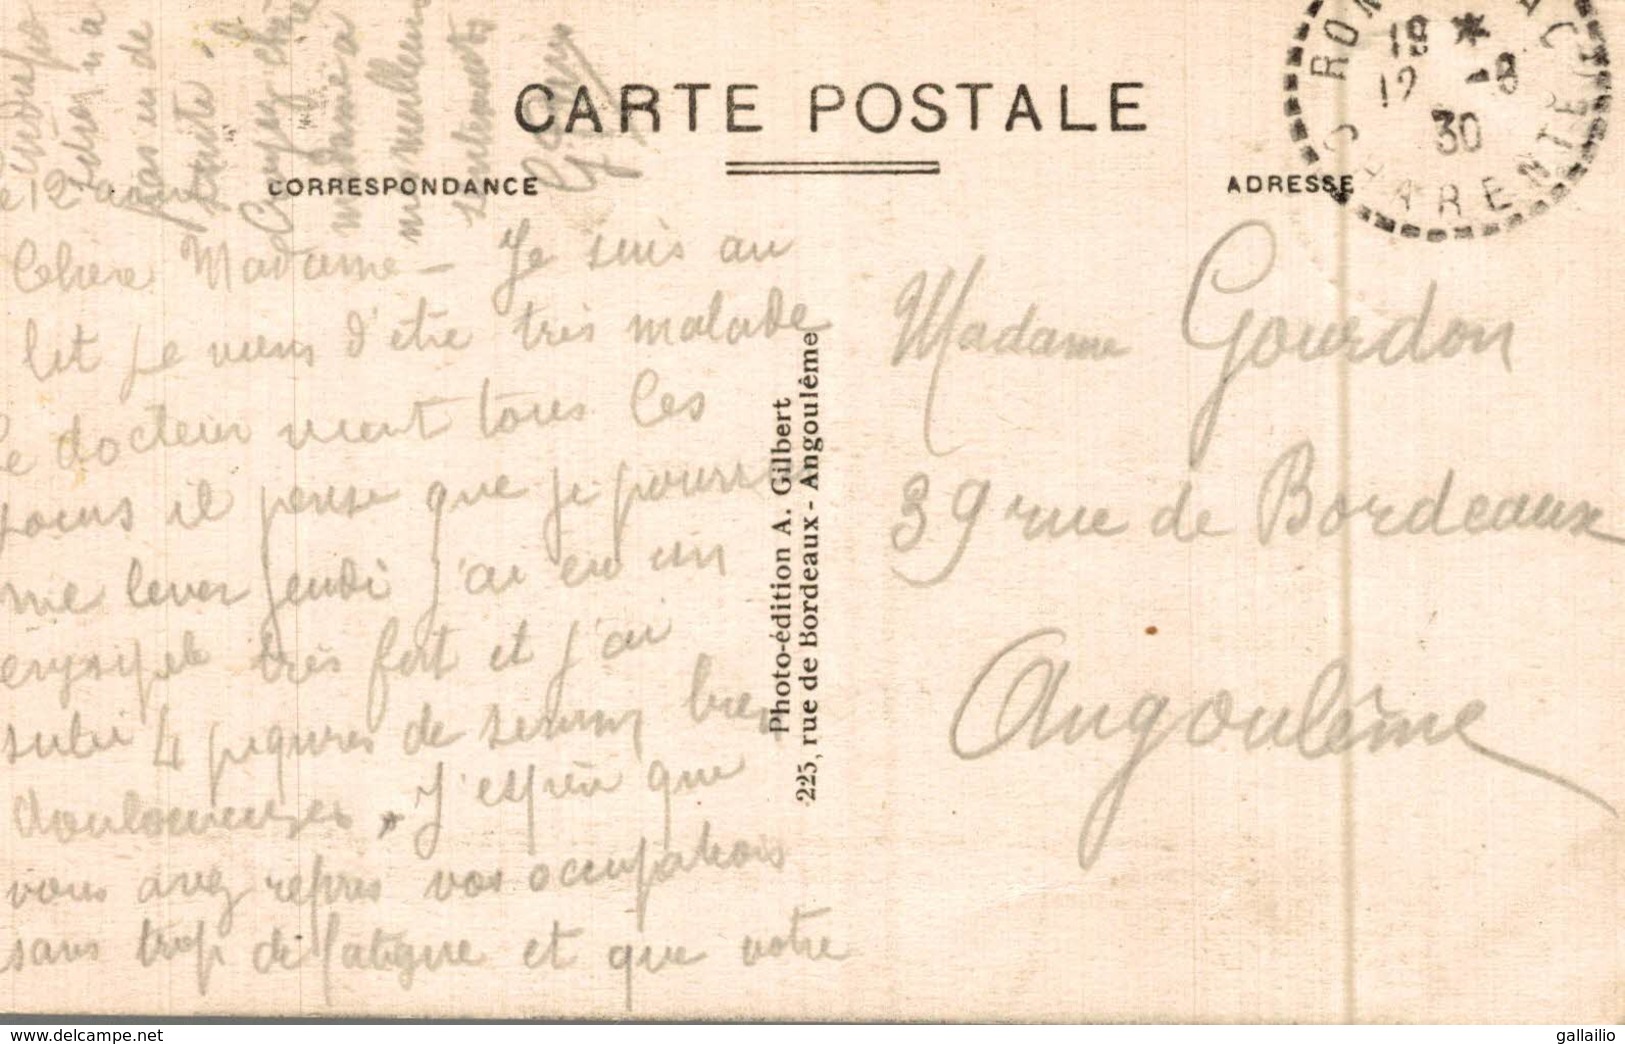 CARTE POSTALE
CORRESPONDANCE
ADRESSE
18 *
12 -8
30
CHARENTE
le 12 août
Chère Madame - Je suis au
lit je viens d'être très malade
le docteur vient tous les
jours il pense que je pourrai
me lever jeudi j'ai eu un
erysipèle très fort et j'ai
subi 4 piqures de serum bien
douloureuses. J'espère que
vous avez repris vos occupations
sans trop de fatigue et que votre
pas en de
Croyez chère
madame à
mes meilleurs
sentiments
Photo-édition A. Gilbert
225, rue de Bordeaux - Angoulême
Madame Gourdon
39 rue de Bordeaux
Angoulême
gallailio